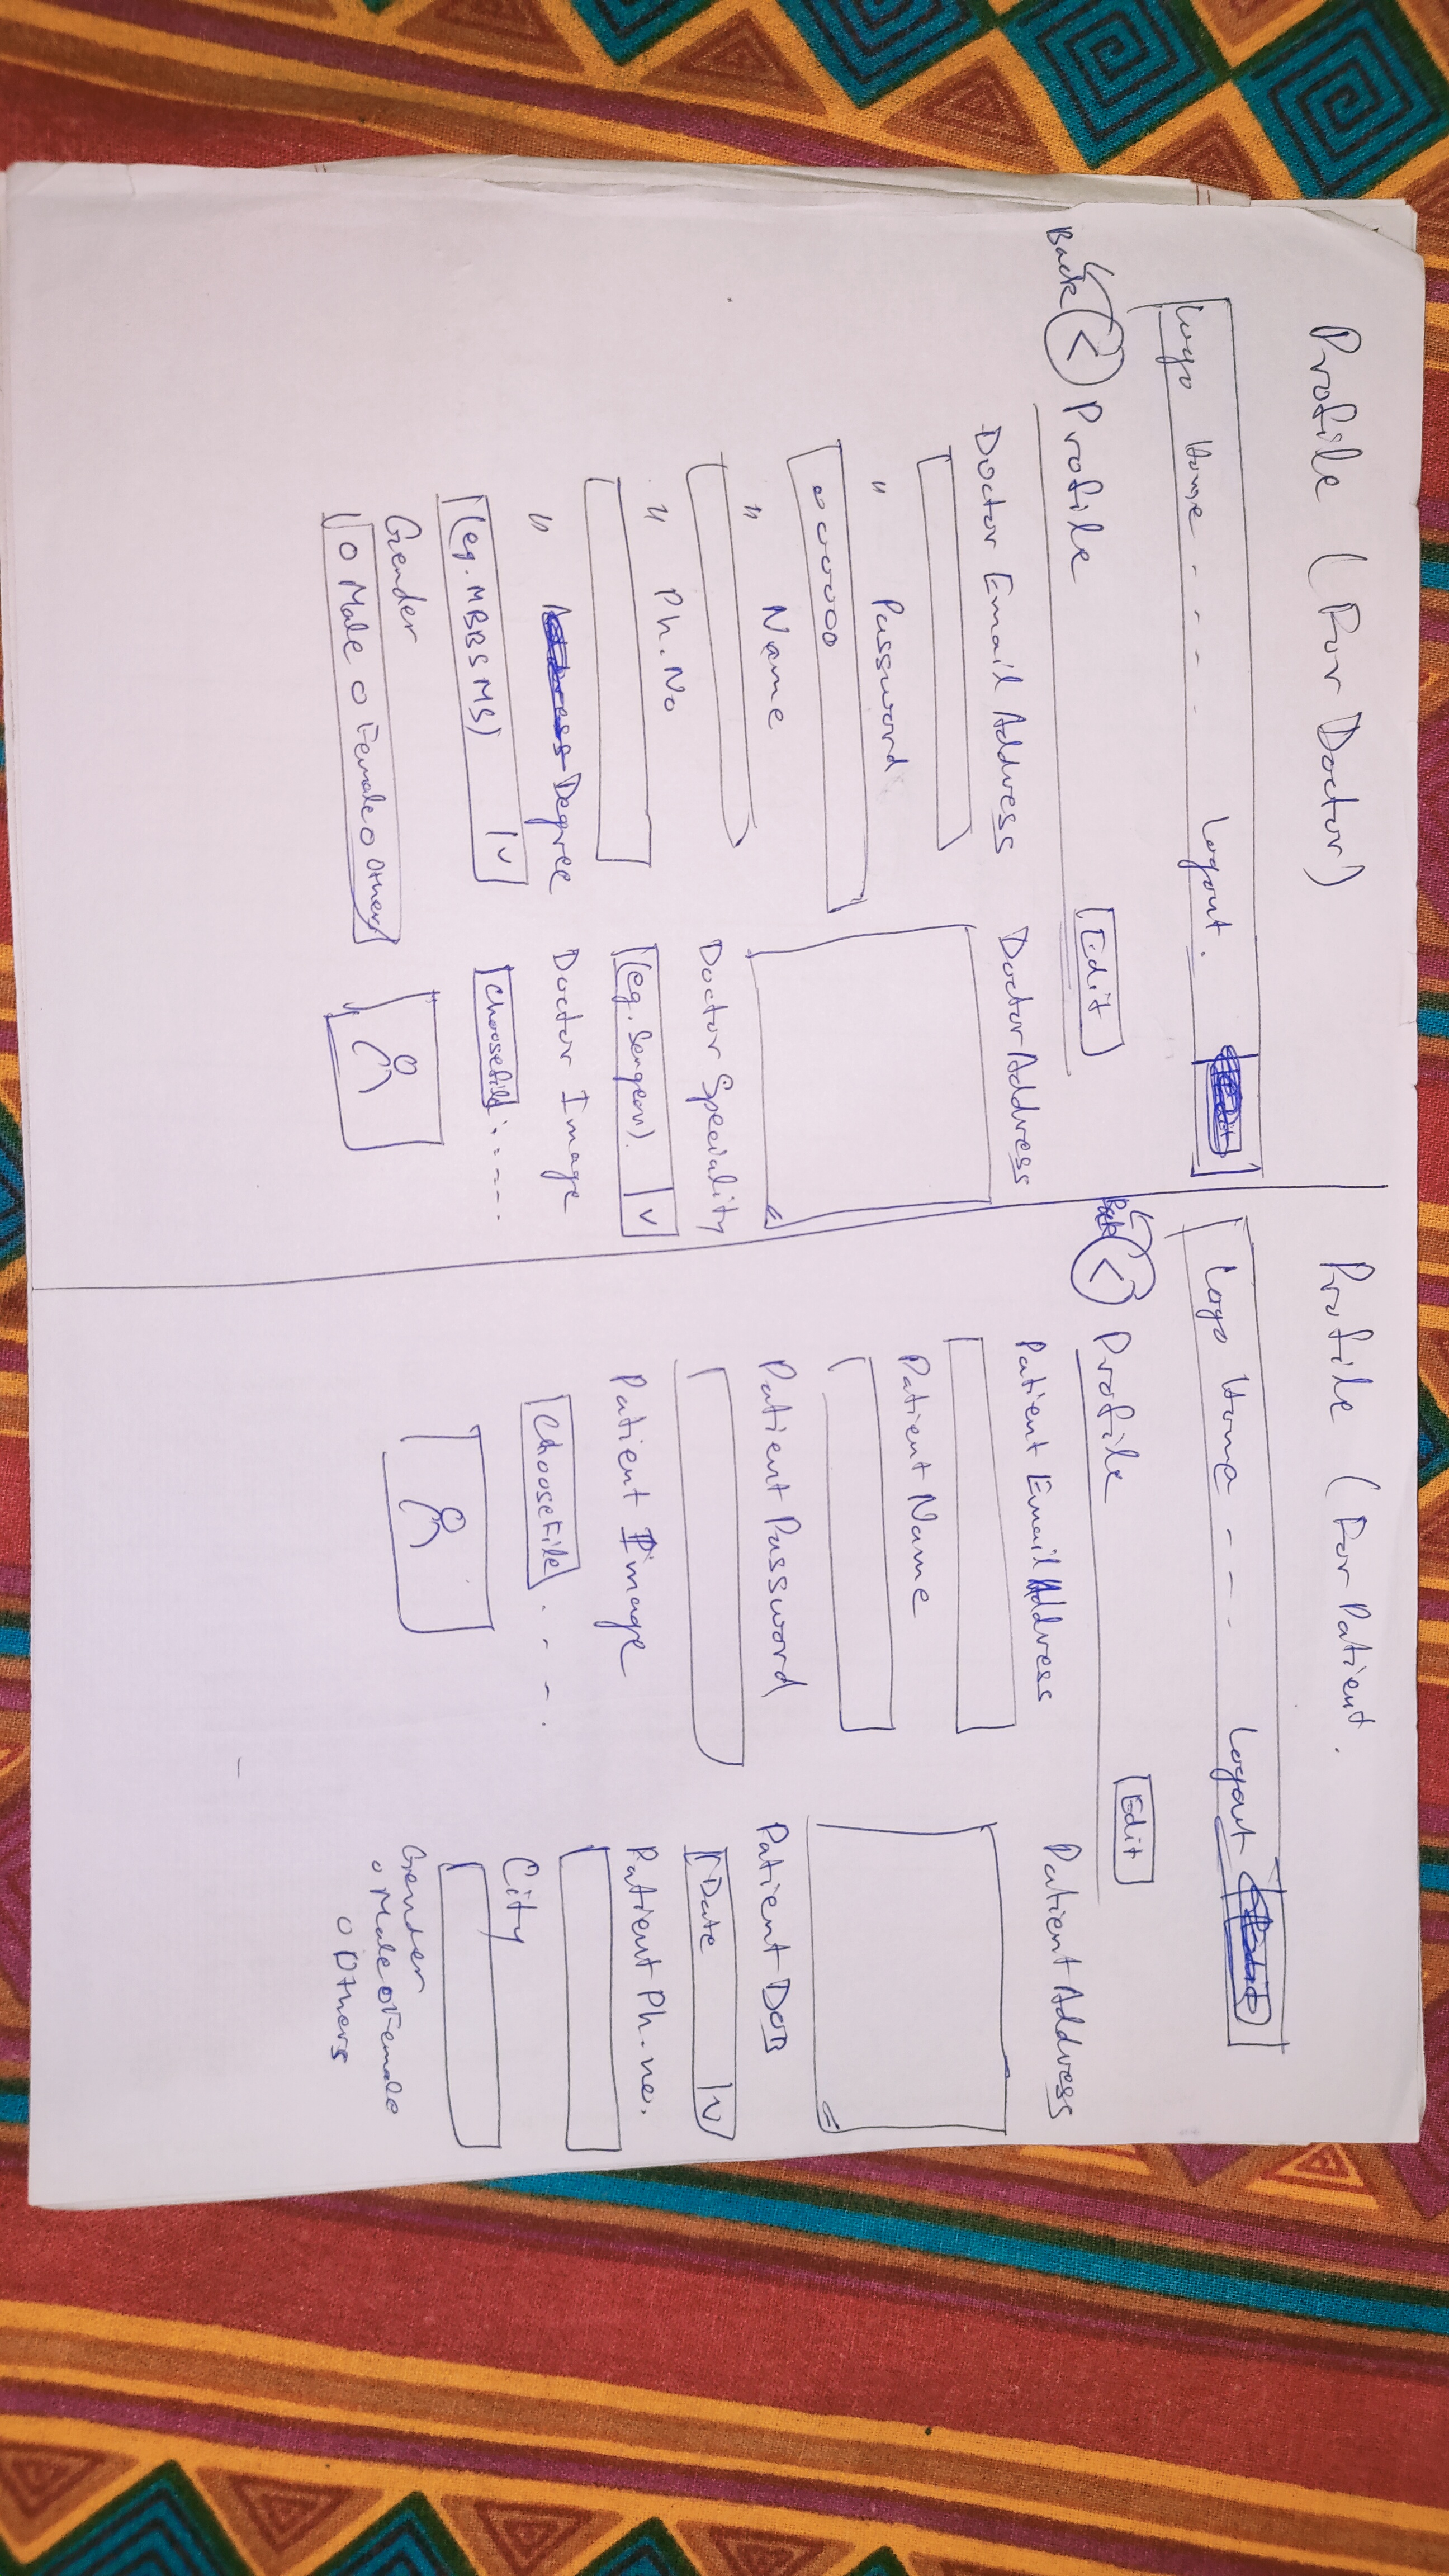 Profile (For Doctor)
Logo Home - - - - Logout.
Back < Profile Edit
Doctor Email Address
" Password
ooooooo
" Name
" Ph.No
" Degree
(eg. MBBS MS) v
Gender
o Male o Female o Others
Doctor Address
Doctor Speciality
(eg. Sergeon). v
Doctor Image
Choosefile . - - - -
Profile (For Patient.
Logo Home - - - Logout
Back < Profile Edit
Patient Email Address
Patient Name
Patient Password
Patient Image
ChooseFile . - - .
Patient Address
Patient DOB
Date v
Patient Ph.no.
City
Gender
o Male o Female
o Others